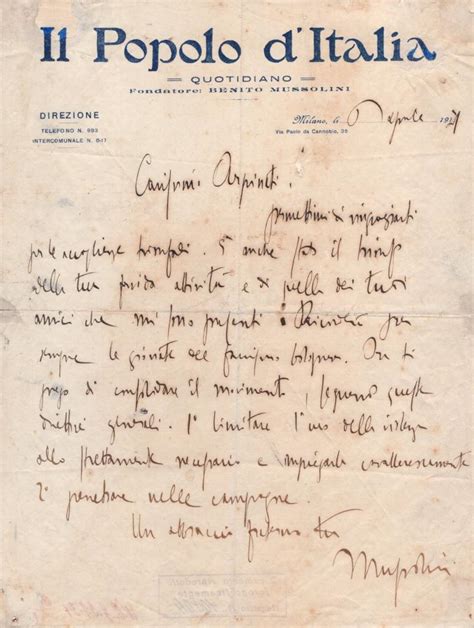 Il Popolo d'Italia
QUOTIDIANO
Fondatore: BENITO MUSSOLINI
DIREZIONE
TELEFONO N. 993
INTERCOMUNALE N. 507
Milano, li 6 Aprile 1921
Via Paolo da Cannobio, 35
Carissimo Arpinati,
permettimi di ringraziarti
per le accoglienze trionfali. È anche stato il trionfo
della tua attività e di quella dei tuoi
amici che mi sono presenti. Ricorderò per
sempre le giornate del fascismo bolognese. Ora ti
prego di consolidare il movimento, seguendo queste
direttive generali. 1° limitare l'uso della violenza
allo strettamente necessario e impiegarla cavallerescamente
2° penetrare nelle campagne.
Un abbraccio fraterno tuo
Mussolini